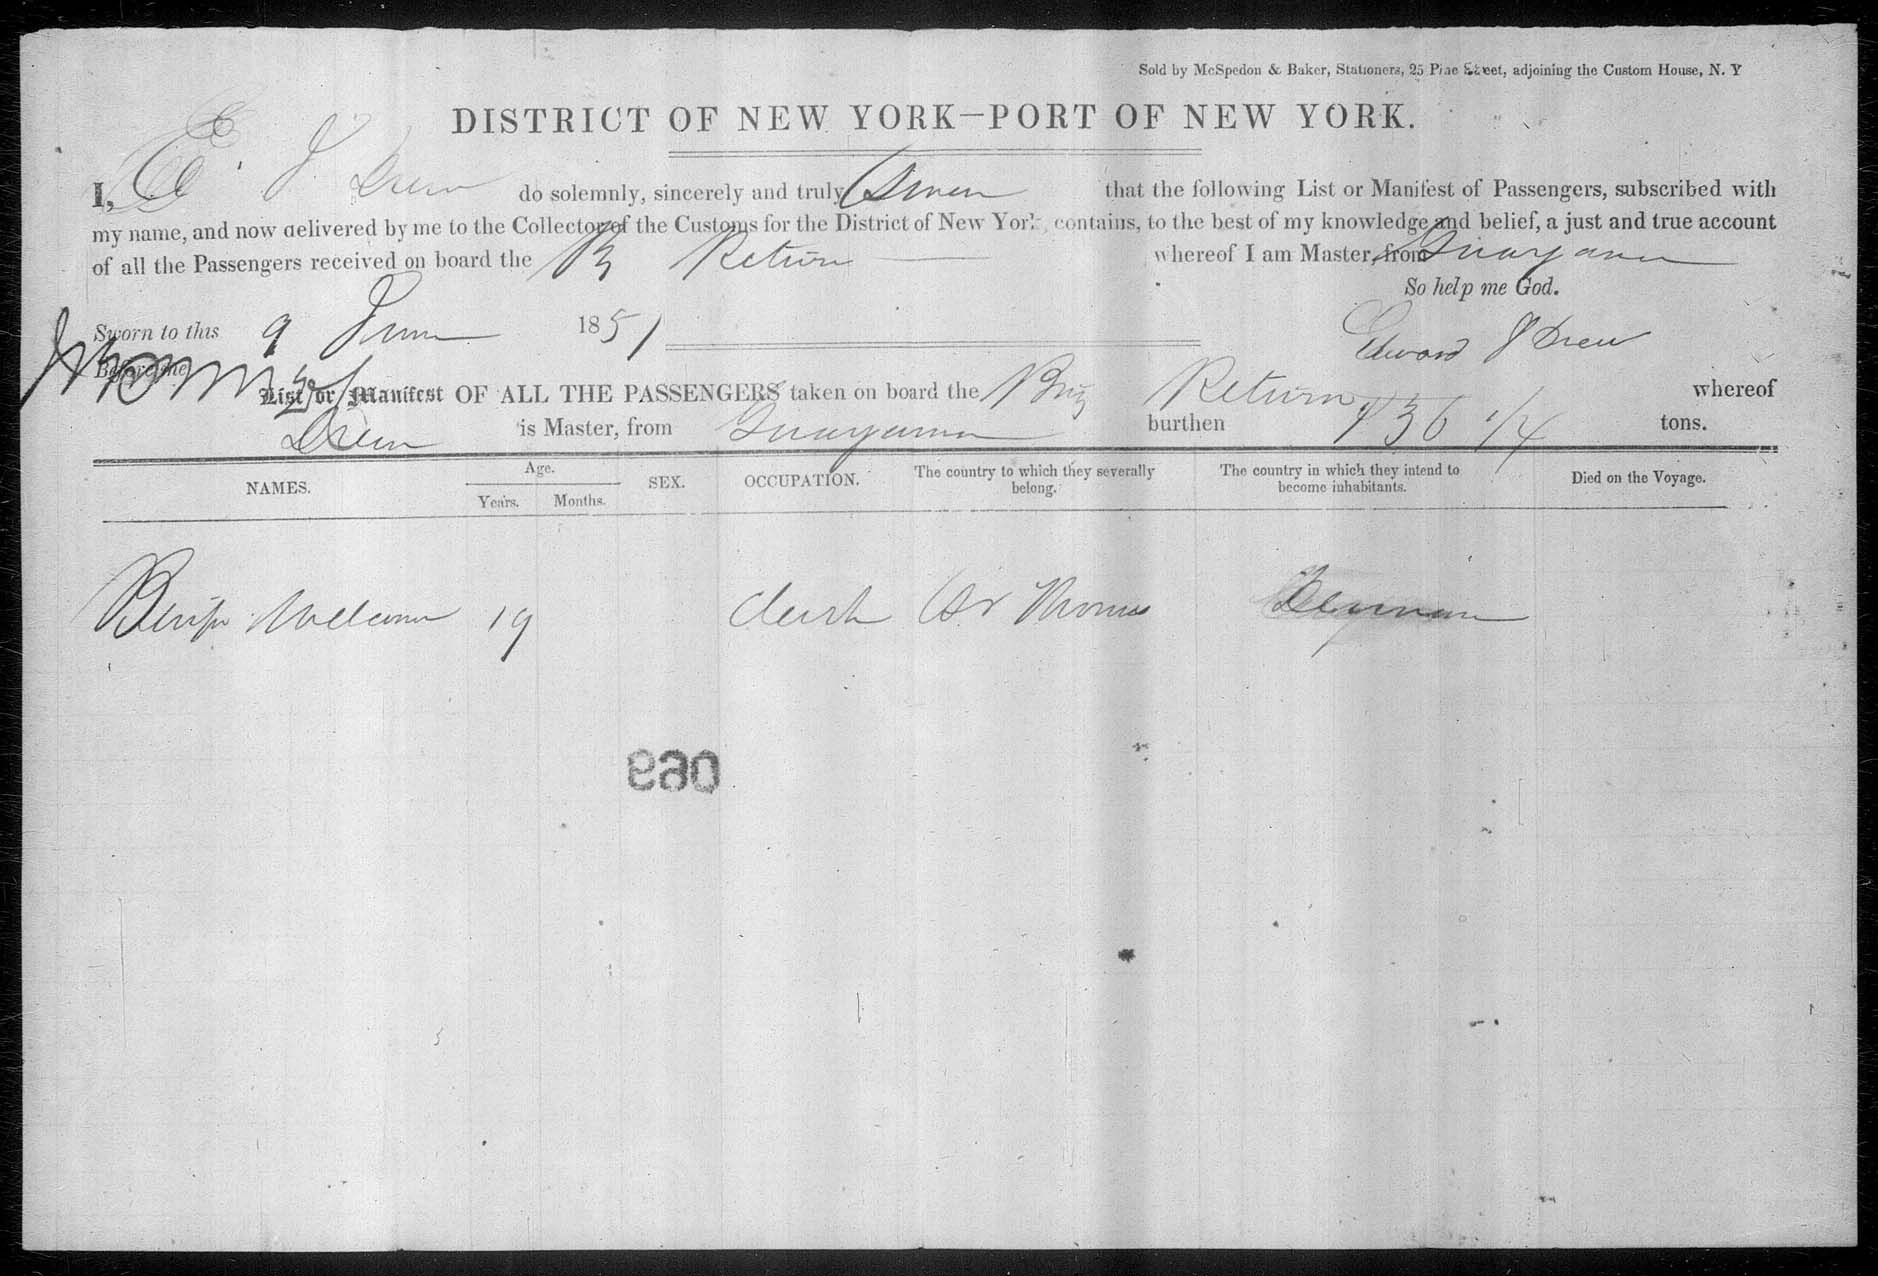 Sold by McSpedon & Baker, Stationers, 25 Pine Street, adjoining the Custom House, N. Y
DISTRICT OF NEW YORK—PORT OF NEW YORK.
I, E J Drew do solemnly, sincerely and truly Swear that the following List or Manifest of Passengers, subscribed with
my name, and now delivered by me to the Collector of the Customs for the District of New York, contains, to the best of my knowledge and belief, a just and true account
of all the Passengers received on board the Br Return whereof I am Master, from Guayama
So help me God.
Sworn to this 9 June 1851
Edward J Drew
Before me
List or Manifest OF ALL THE PASSENGERS taken on board the Brig Return whereof
Drew is Master, from Guayama burthen 136 1/4 tons.
NAMES. Age. Years. Months. SEX. OCCUPATION. The country to which they severally belong. The country in which they intend to become inhabitants. Died on the Voyage.
Benjn Welcome 19 Clerk St Thomas
069